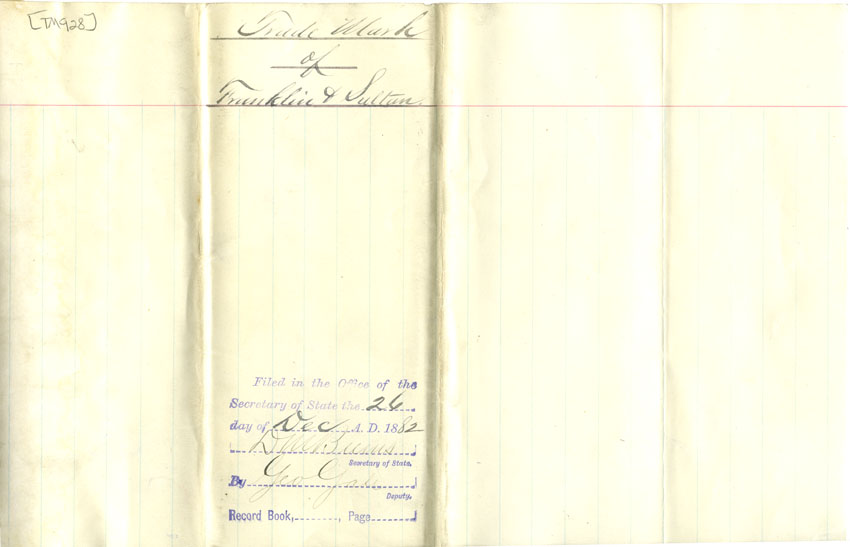 [TM928]
Trade Mark
of
Franklin & Sultan
Filed in the Office of the
Secretary of State the 26
day of Dec A. D. 1882
Secretary of State.
By Geo
Deputy.
Record Book, , Page